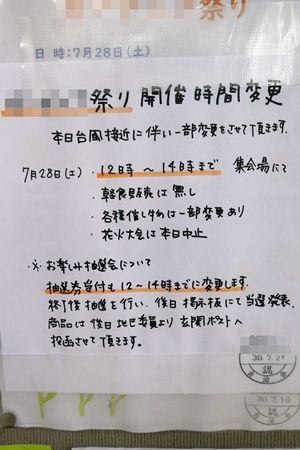 祭り
日 時:7月28日(土)
祭り 開催時間変更
本日台風接近に伴い一部変更をさせて頂きます。
7月28日(土)・12時〜14時まで 集会場にて
・軽食販売は無し
・各種催し物は一部変更あり
・花火大会は本日中止
※お楽しみ抽選会について
抽選券受付も12〜14時までに変更します。
終了後抽選を行い、後日掲示板にて当選発表。
商品は後日地区委員より玄関ポストへ
投函させて頂きます。
30.7.2
認
30.7.10
認